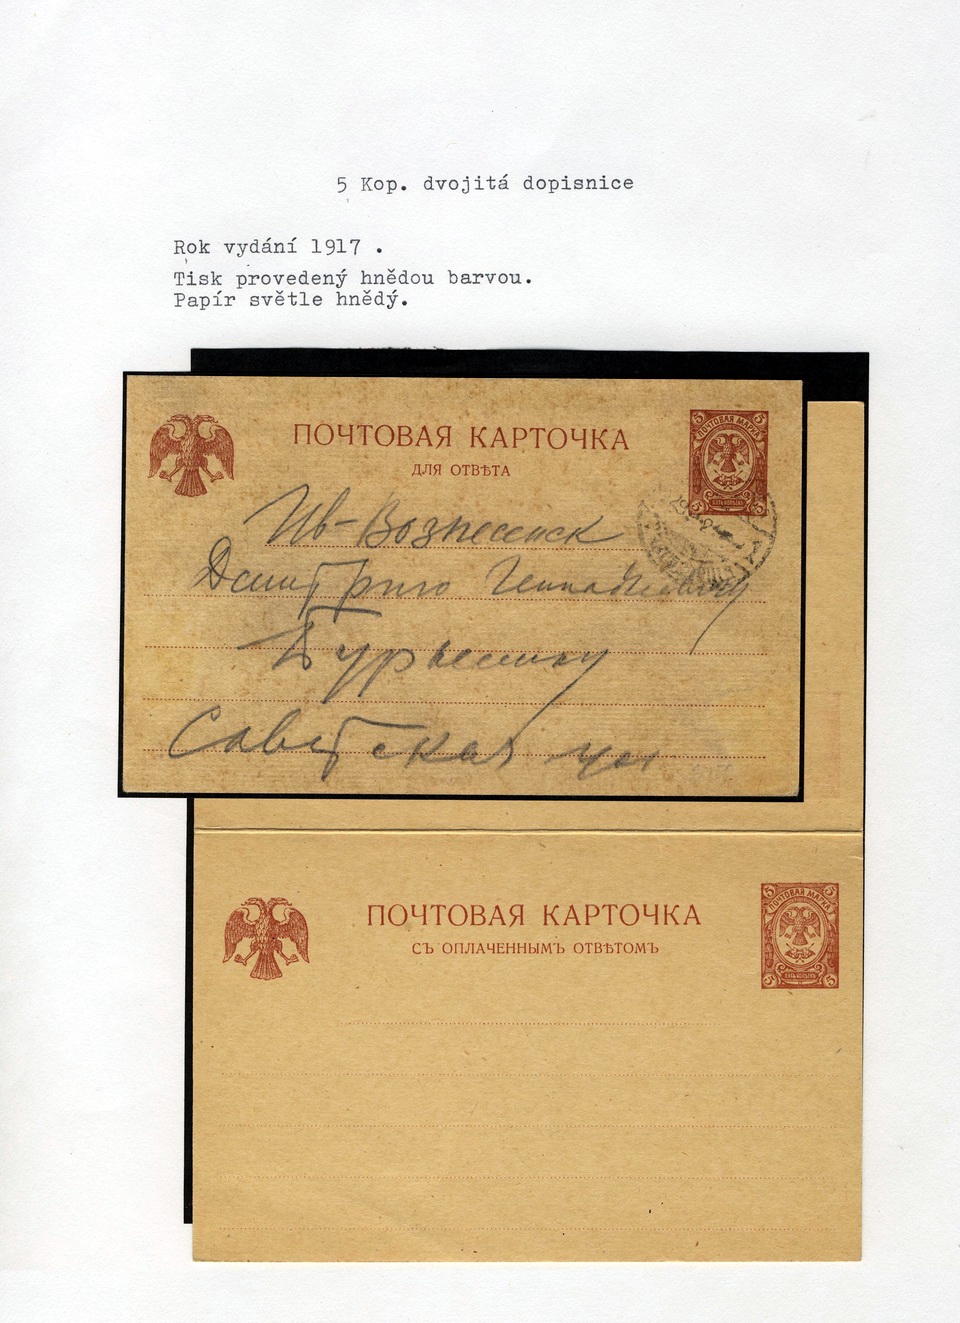 5 Kop. dvojitá dopisnice
Rok vydání 1917 .
Tisk provedený hnědou barvou.
Papír světle hnědý.
ПОЧТОВАЯ КАРТОЧКА
ДЛЯ ОТВѢТА
5 5
ПОЧТОВАЯ МАРКА
ПЯТЬ КОПѢЕКЪ
5 5
Ив-Вознесенск
Дмитрию Геннадиевичу
Бурылину
Советская ул
ПОЧТОВАЯ КАРТОЧКА
СЪ ОПЛАЧЕННЫМЪ ОТВѢТОМЪ
5 5
ПОЧТОВАЯ МАРКА
ПЯТЬ КОПѢЕКЪ
5 5